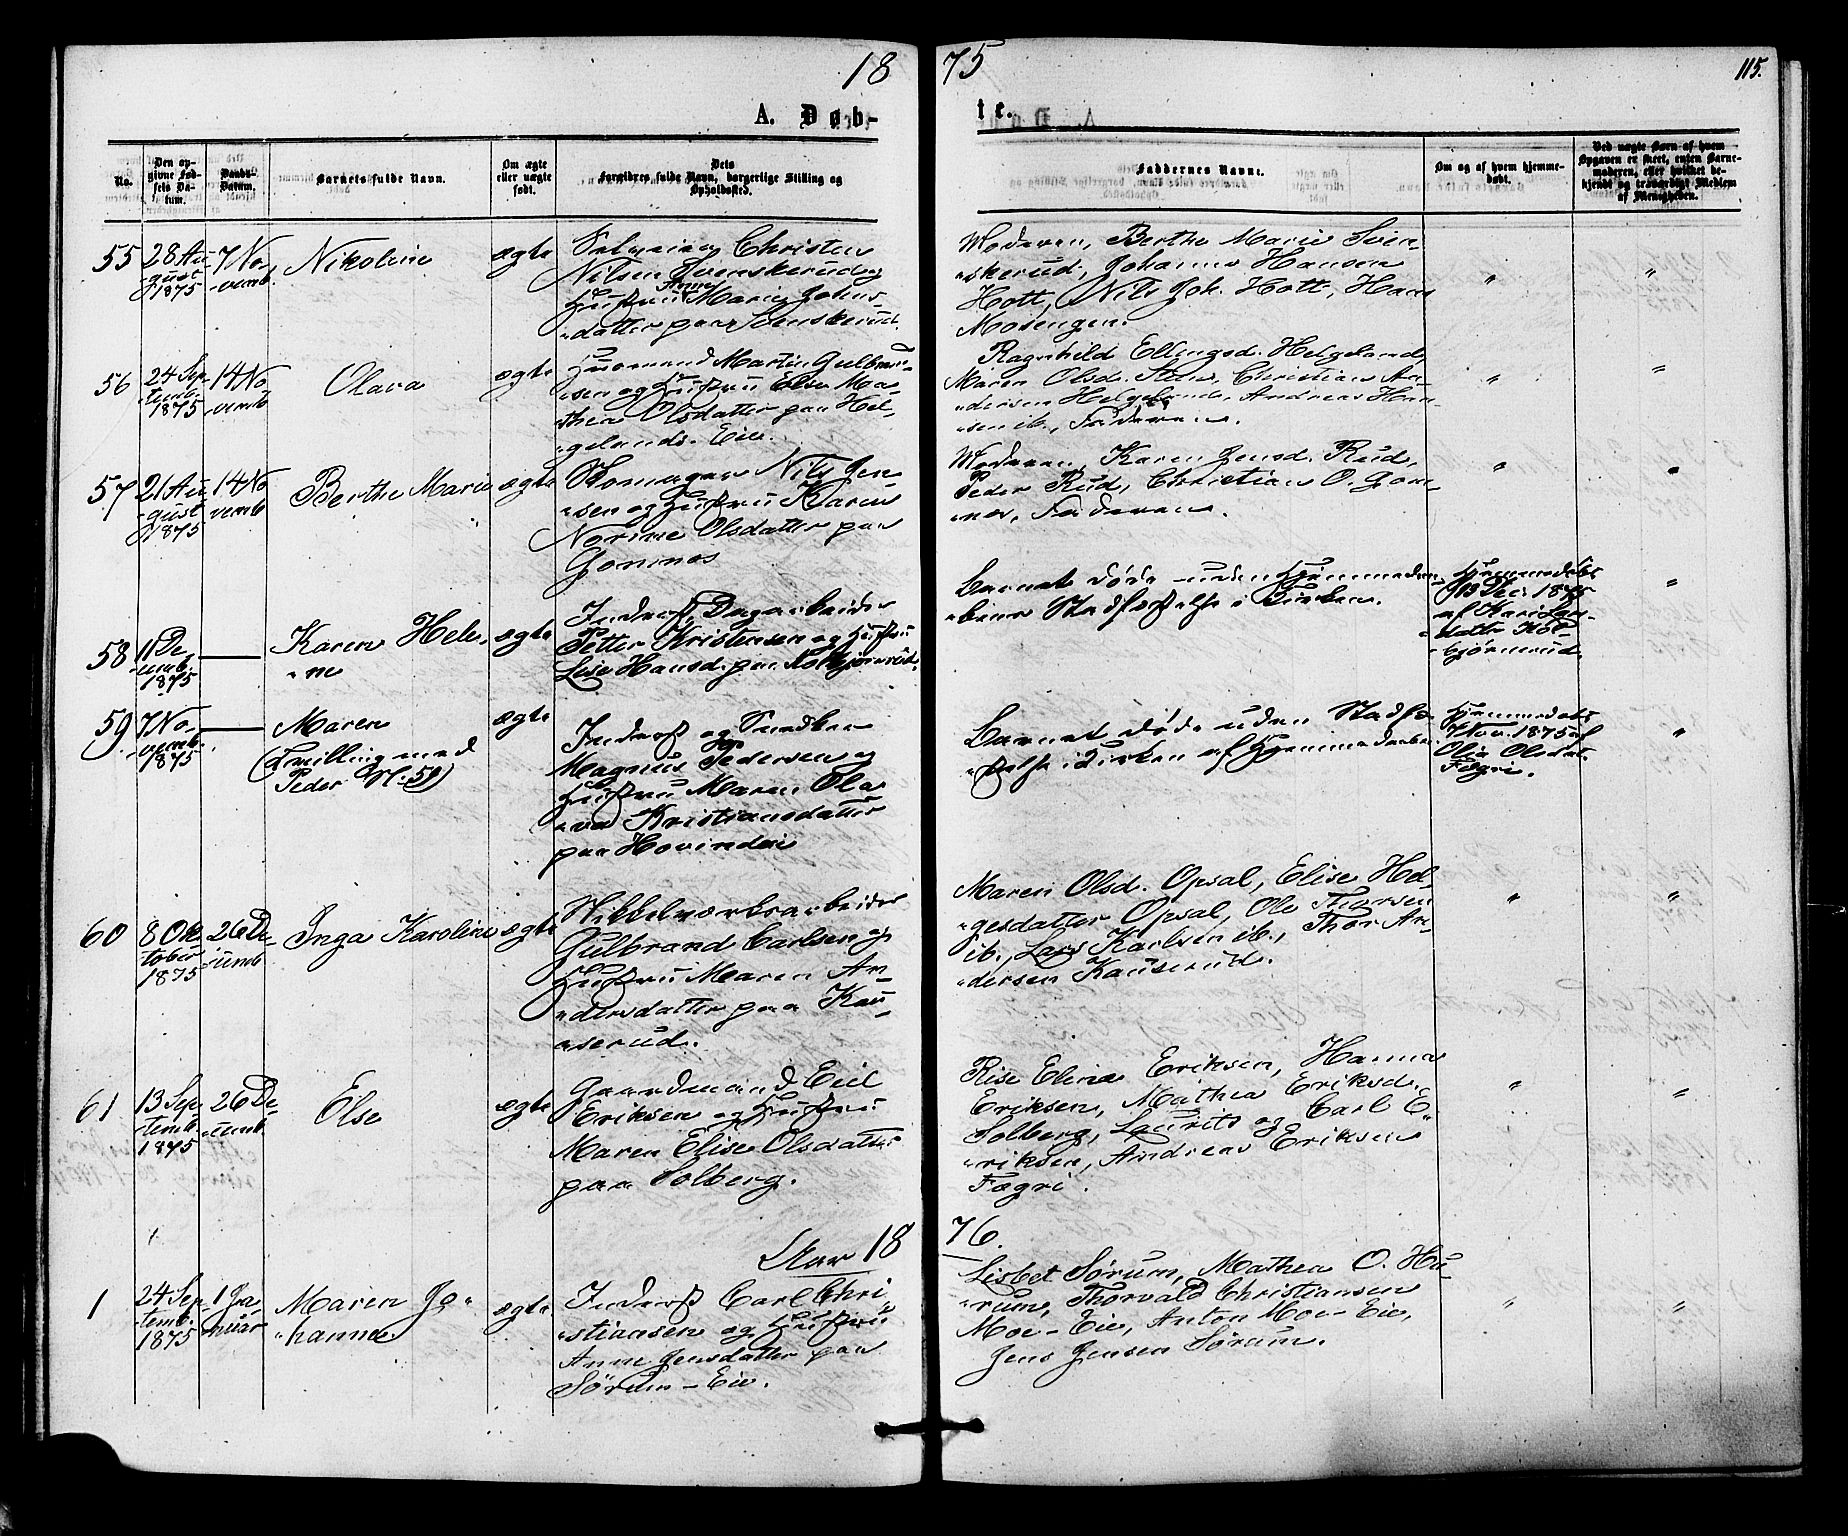 18 75
115.
A. Døb- te.
No.
Den op-
givne Fød-
sels Da-
tum.
Daabs-
Datum.
Barnets fulde Navn.
Om ægte
eller uægte
født.
Dets
Forældres fulde Navn, borgerlige Stilling og
Opholdssted.
Faddernes Navne.
Om og af hvem hjemme-
døbt.
Ved uægte Børn af hvem
Opgaven er skeet, enten Barne-
moderen, eller hvilket be-
kjendt og troværdigt Medlem
af Menigheden.
55
28 Au-
gust
1875
7 No-
vemb.
Nikoline
ægte
Selveier Christen
Nilsen Svenskerud og
Hustru Anne Marie Johns-
datter paa Svenskerud.
Moderen, Berthe Marie Sven-
skerud, Johannes Hansen
Hott, Nils Joh. Hott, Hans
Mosengen.
"
"
56
24 Sep-
temb.
1875
14 No-
vemb
Olava
ægte
Huusmand Martin Gulbrand-
sen og Hustru Ellen Ma-
thea Olsdatter paa Hel-
gelands Eie.
Ragnhild Ellingsd. Helgeland,
Maren Olsd. Steen, Christian An-
dersen Helgeland, Andreas Han-
sen ib., Faderen.
"
"
57
21 Au-
gust
1875
14 No-
vemb
Berthe Marie
ægte
Skomager Nils Jen-
sen og Hustru Karen
Norine Olsdatter paa
Gomnes
Moderen, Karen Jensd. Rud,
Peder Rud, Christian O. Gom-
nes, Faderen.
"
"
58
11 De-
cemb.
1875
Karen Hele-
ne
ægte
Inderst, Dagarbeider
Petter Kristensen og Hustru
Lise Hansd. paa Kolbjørnrud.
Barnet døde uden Hjemmedaa-
bens Stadfæstelse i Kirken.
Hjemmedøbt
13 Dec. 1875
af Kari
datter Kol-
bjørnrud.
"
59
7 No-
vemb.
1875
Maren
(Tvilling med
Peder Nr. 51)
ægte
Inderst og Snedker
Magnus Pedersen og
Hustru Maren Ola-
va Kristiansdatter
paa Hovindeie
Barnet døde uden Stadfæ-
stelse i Kirken af Hjemmedaaben.
Hjemmedøbt
7 Nov. 1875 af
Olia Olsdat.
Fægri.
"
60
8 Ok-
tober
1875
26 De-
cemb
Inga Karoline
ægte
Nikkelværksarbeider
Gulbrand Carlsen og
Hustru Maren An-
dersdatter paa Kau-
serud.
Maren Olsd. Opsal, Elise Hel-
gesdatter Opsal, Ole Thorsen
ib., Lars Karlsen ib., Thor An-
dersen Kauserud.
"
"
61
13 Sep-
temb.
1875
26 De-
cemb.
Else
ægte
Gaardmand Eiel
Eriksen og Hustru
Maren Elise Olsdatter
paa Solberg.
Rise Eline Eriksen, Hanna
Eriksen, Mathea Eriksd.
Solberg, Laurits og Carl E-
riksen, Andreas Eriksen
Fægri.
"
"
Aar 18 76.
1
24 Sep-
temb.
1875
1 Ja-
nuar
Maren Jo-
hanne
ægte
Inderst Carl Chri-
stiansen og Hustru
Anne Jensdatter paa
Sørum-Eie.
Lisbet Sørum, Mathea O. Hu-
rum, Thorvald Christiansen
Moe-Eie, Anton Moe-Eie,
Jens Jensen Sørum.
"
"